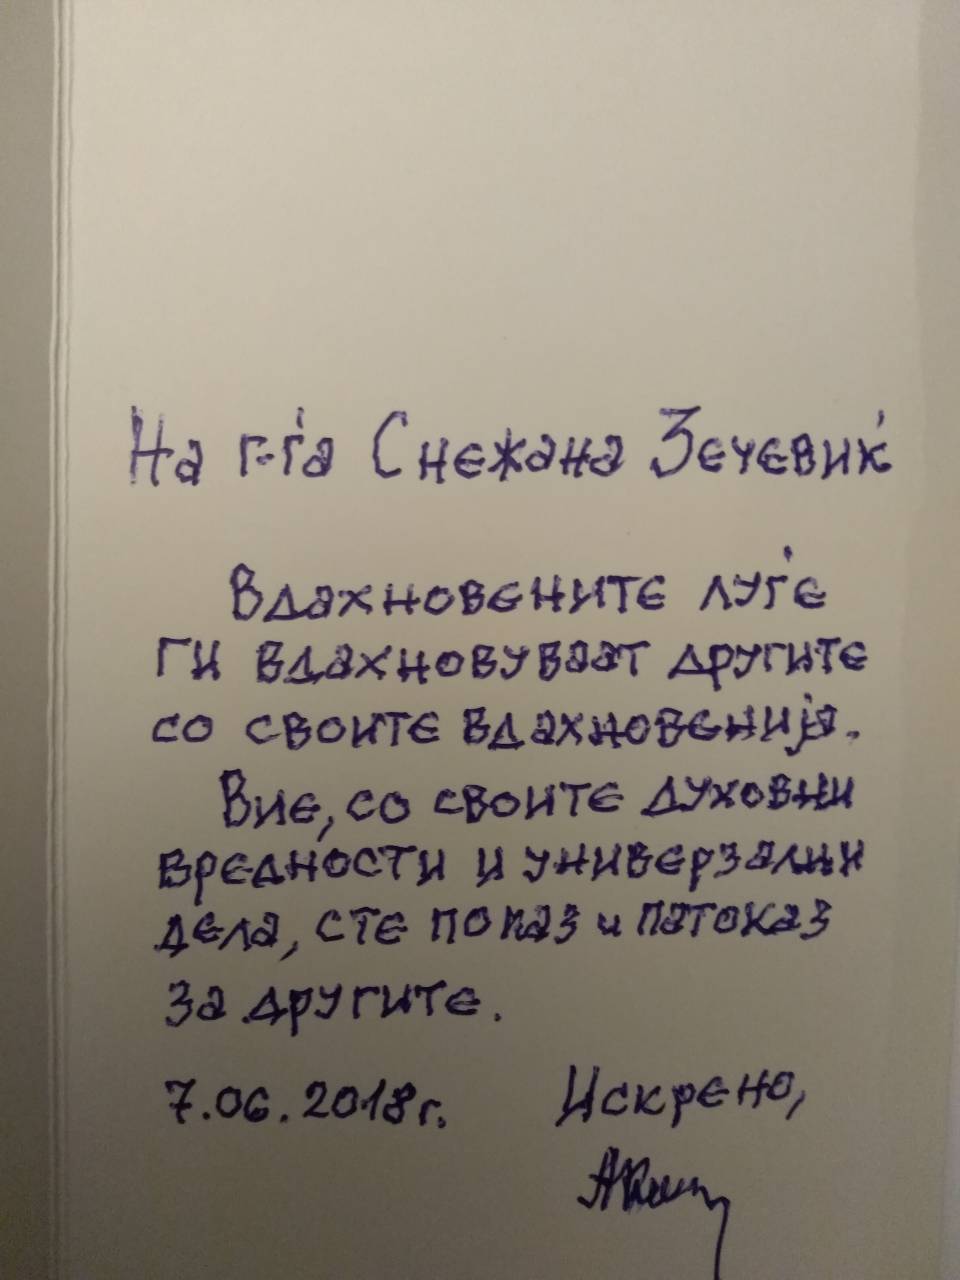 На г-ѓа Снежана Зечевиќ
Вдахновените луѓе
ги вдахновуваат другите
со своите вдахновенија.
Вие, со своите духовни
вредности и универзални
дела, сте показ и патоказ
за другите.
7.06.2018г. Искрено,